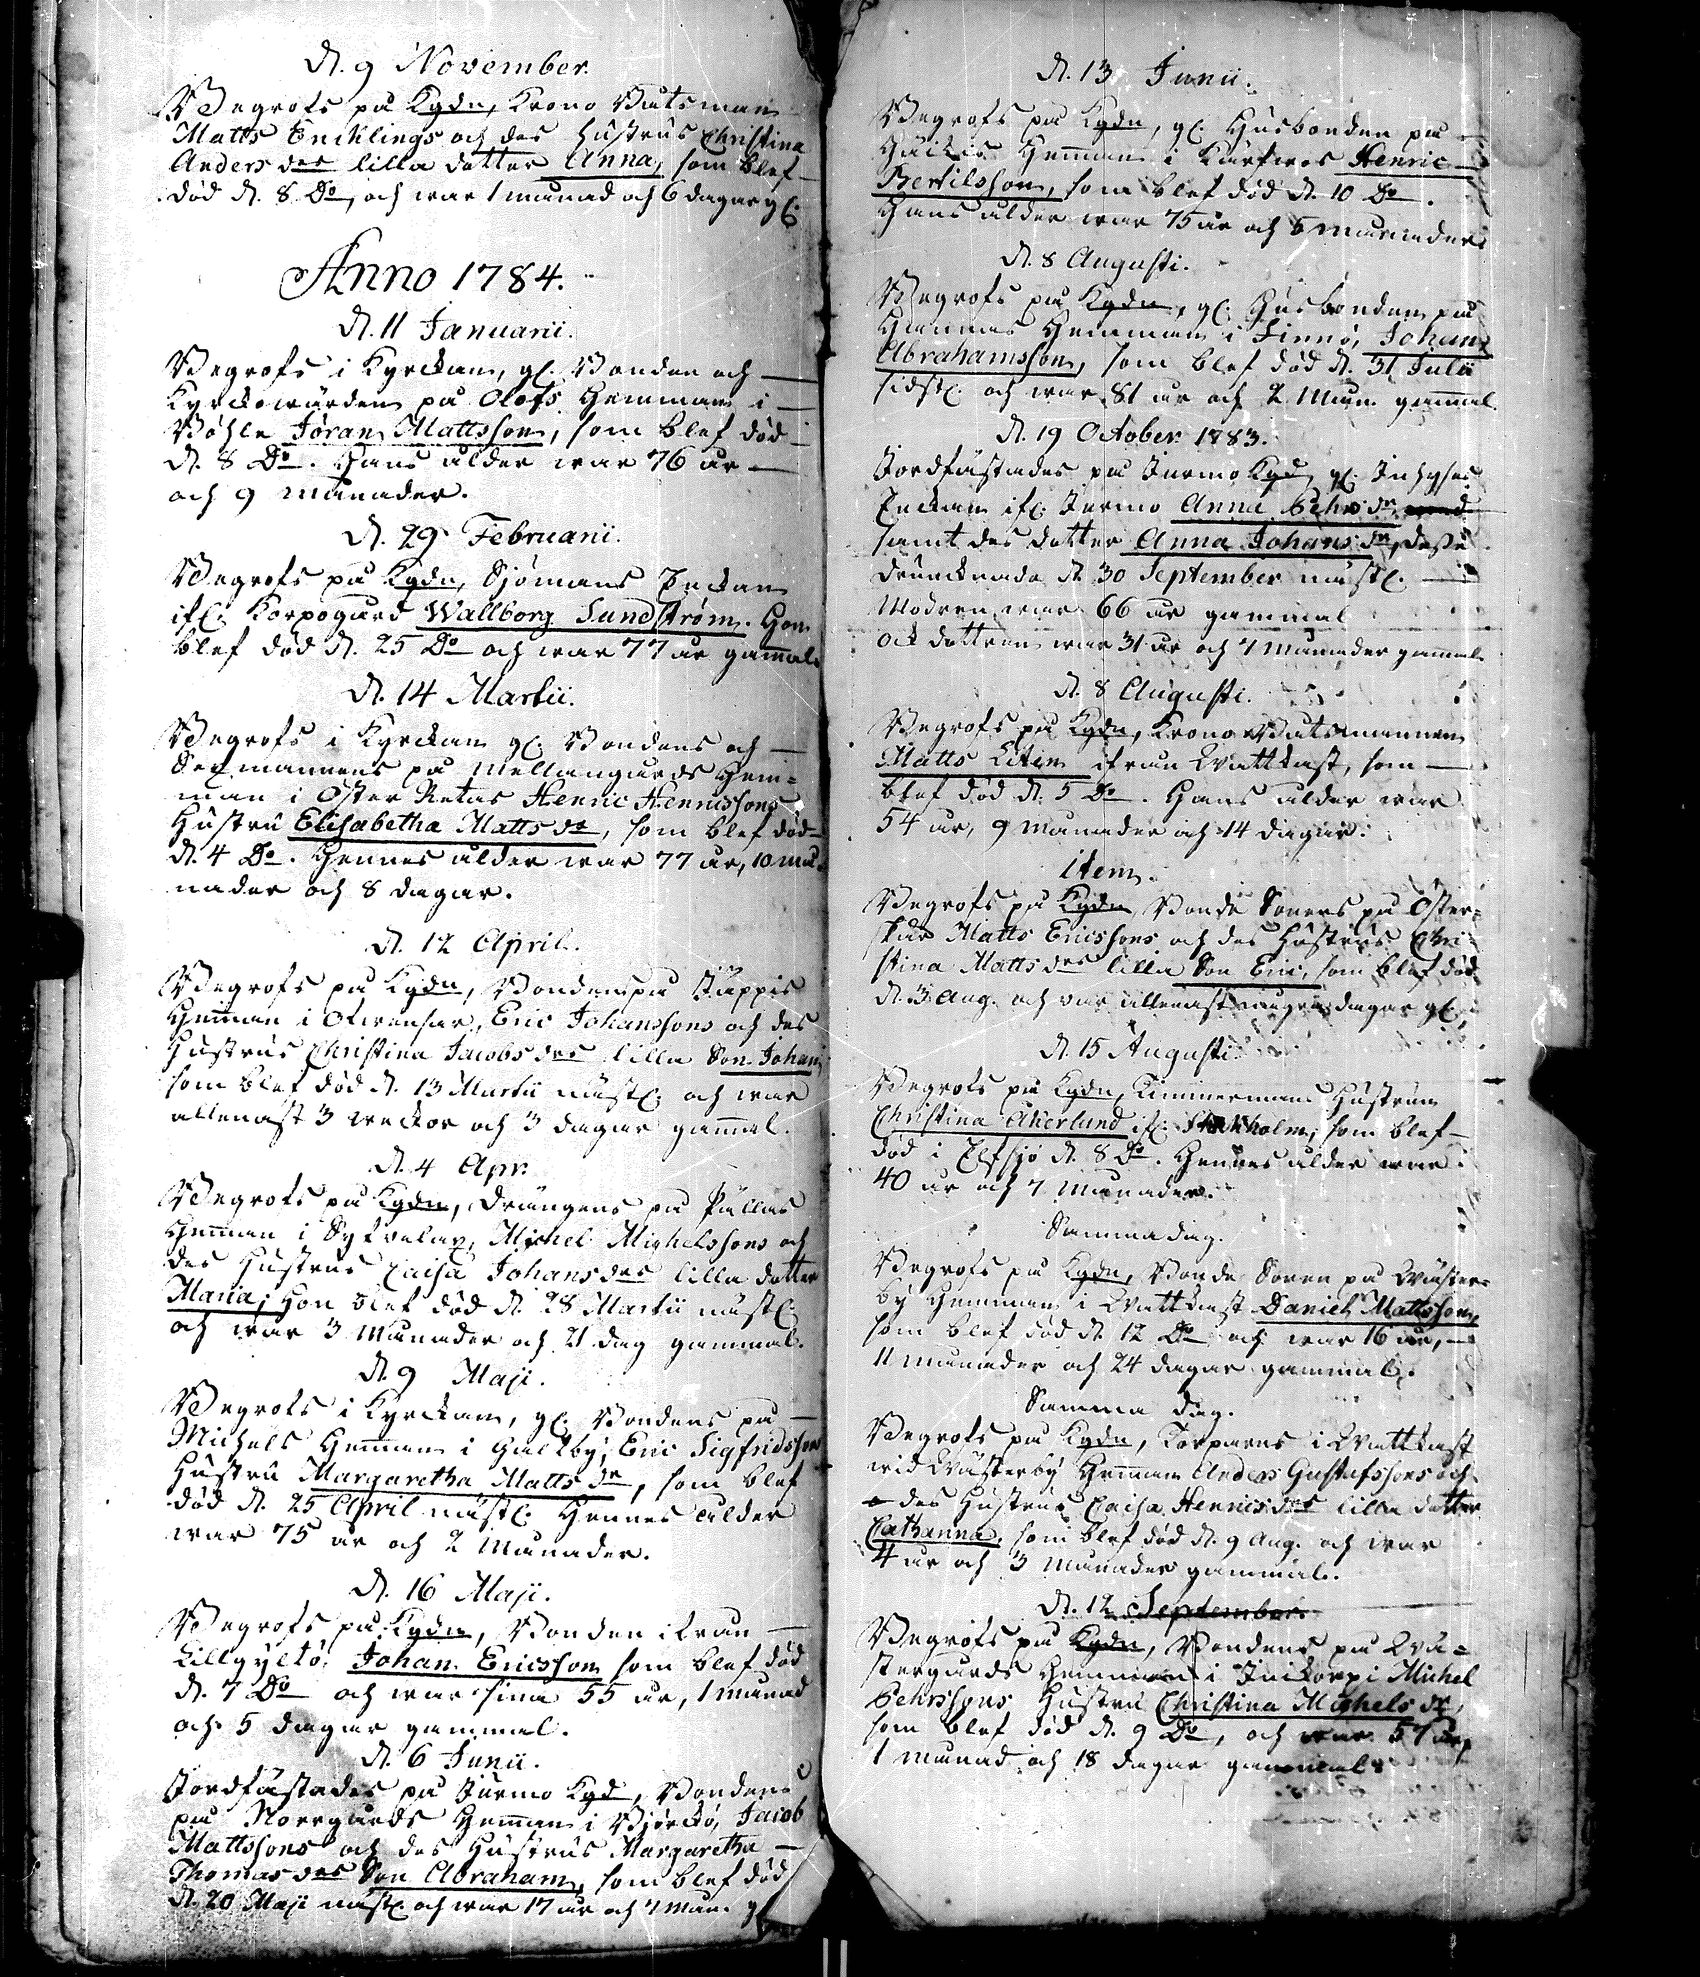 D. 9 November.
Begrofs på Kgdn, Krono Båtsman
Matts Encklings och des hustrus Christina
Anders des lilla dotter Anna, som blef
död d. 8 Do, och war 1 månad och 6 dagar gl.
Anno 1784.
D. 11 Januarii.
Begrofs i Kyrckan, gl. Bonden och
Kyrckowärden på Olofs Hemman i
Böhle Jöran Mattsson, som blef död
d. 8 Do. Hans ålder war 76 år
och 9 månader.
D. 29 Februarii.
Begrofs på Kgdn, Sjömans Enckan
ifr. Korpogård Wallborg Sundström. Hon
blef död d. 25 Do och war 77 år gammal.
D. 14 Martii.
Begrofs i Kyrckan gl. Bondens och
Sexmannens på Mellangårds Hem=
man i Öster Retais Henric Henricssons
Hustru Elisabetha Matts dr, som blef död
d. 4 Do. Hennes ålder war 77 år, 10 må
nader och 8 dagar.
D. 12 April.
Begrofs på Kgdn, Bondens på Stäppis
Hemman i Ofvensar, Eric Johanssons och des
Hustrus Christina Jacobs des lilla Son Johan,
som blef död d. 13 Martii nästl. och war
allenast 3 weckor och 3 dagar gammal.
D. 4 Apr.
Begrofs på Kgdn, Drängens på Pällas
Hemman i Sylvelax, Michel Michelssons och
des Hustrus Caisa Johans des lilla dotter
Maria; Hon blef död d. 28 Martii nästl.
och war 3 månader och 21 dag gammal.
D. 9 Maji.
Begrofs i Kyrckan, gl. Bondens på
Michels Hemman i Galtby, Eric Sigfridsson
Hustru Margaretha Matts dr, som blef
död d. 25 April nästl. Hennes ålder
war 75 år och 2 månader.
D. 16 Maji.
Begrofs på Kgdn, Bonden ifrån
Lillgyltö, Johan Ericsson som blef död
d. 7 Do och war sina 55 år, 1 månad
och 5 dagar gammal.
D. 6 Junii.
Jordfästades på Jurmo Kgd, Bondens
på Norrgårds Hemman i Björckö, Jacob
Mattssons och des Hustrus Margaretha
Thomas des Son Abraham, som blef död
d. 20 Maji nästl. och war 17 år och 7 mån. g
D. 13 Junii.
Begrofs på Kgdn, gl. Husbonden på
Häikis Hemman i Kärfwes Henric
Bertilsson, som blef död d. 10 Do.
Hans ålder war 75 år och 5 månader.
D. 8 Augusti.
Begrofs på Kgdn, gl. Husbonden på
Hannas Hemman i Finnö, Johan
Abrahamsson, som blef död d. 31 Julii
sidstl. och war 81 år och 2 Mån. gammal.
D. 19 October 1783.
Jordfästades på Jurmo Kgd gl. Inhyses
Enckan ifr. Jurmo Anna Pehrs dr
samt des dotter Anna Johans dr, desse
drunknade d. 30 September nästl.
Modren war 66 år gammal
och dottren war 31 år och 7 månader gammal
D. 8 Augusti.
Begrofs på Kgdn, Krono Båtsmannen
Matts Liten ifrån Wattkast, som
blef död d. 5 Do. Hans ålder war
54 år, 9 månader och 14 dagar.
item.
Begrofs på Kgdn Bonde Sonens på Öster=
skär Matts Ericssons och des Hustrus Chri
stina Matts des lilla Son Eric, som blef död
d. 3 Aug. och var allenast några dagar gl.
D. 15 Augusti.
Begrofs på Kgdn, Timmermans Hustrun
Christina Åkerlund ifr. Stockholm, som blef
död i Elfsjö d. 8 Do. Hennes ålder war
40 år och 7 månader.
Samma dag.
Begrofs på Kgdn, Bonde Sonen på Wäster=
by Hemman i Wattkast Daniel Mattsson,
som blef död d. 12 Do och war 16 år,
11 månader och 24 dagar gammal.
Samma dag.
Begrofs på Kgdn, Torparens i Wattkast
wid Wästerby Hemman Anders Gustafssons och
des Hustrus Caisa Henrics des lilla dotter
Catharina, som blef död d. 9 Aug. och war
4 år och 3 månader gammal.
D. 12 September.
Begrofs på Kgdn, Bondens på Wä=
stergårds Hemman i Initorp Michel
Pehrssons Hustru Christina Michels dr,
som blef död d. 9 Do, och war 57 år,
1 månad och 18 dagar gammal.